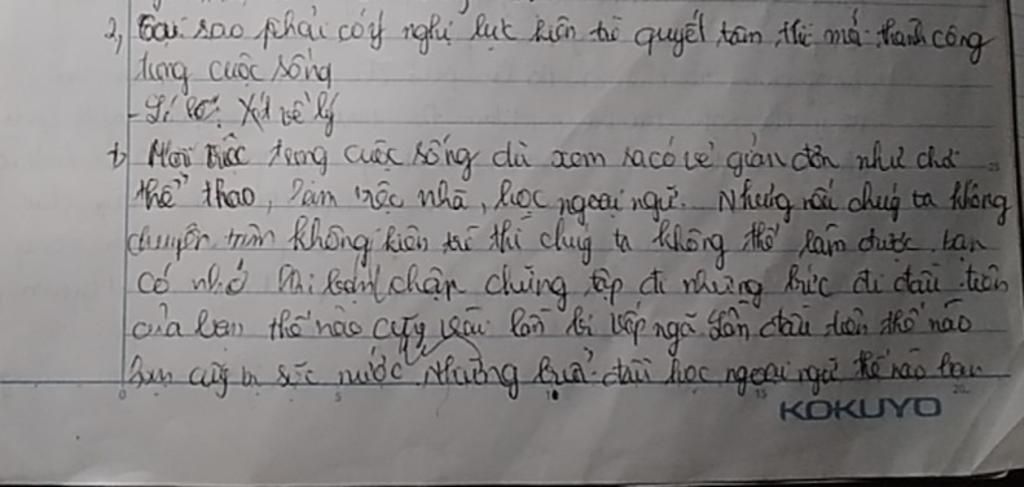 2, Tại sao phải có ý nghị lực kiên trì quyết tâm thì mới thành công
trong cuộc sống
- Lí lẽ: Xét về lý
+) Mọi việc trong cuộc sống dù xem ra có vẻ giản đơn như chơi
thể thao, làm việc nhà, học ngoại ngữ. Nhưng nếu chúng ta không
chuyên không kiên trì thì chúng ta không thể làm được bạn
có nhớ khi chập chững tập đi những bước đi đầu tiên
của bạn thế nào cũng lần bị vấp ngã lần đầu tiên thế nào
bạn cũng bị sặc nước. Những buổi đầu học ngoại ngữ thế nào bạn
0 5 10 15 20
KOKUYO